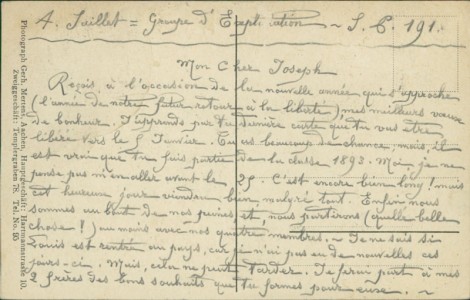 4. Juillet = Groupe d'Exploitation ~ S. P. 191.
Mon Cher Joseph
Reçois, à l'occasion de la nouvelle année qui s'approche
(l'année de notre futur retour à la liberté), mes meilleurs vœux
de bonheur. J'apprends par ta dernière carte que tu vas être
libéré vers le 5 Janvier. Tu as beaucoup de chance, mais, il
est vrai que tu fais partie de la classe 1893. Moi je ne
pense pas m'en aller avant le 25 C'est encore bien long! mais
cet heureux jour viendra bien malgré tout. Enfin nous
sommes au bout de nos peines et, nous partirons (quelle belle
chose!) au moins avec nos quatre membres. ~ Je ne sais si
Louis est rentré au pays, car je n'ai pas eu de nouvelles ces
jours-ci. Mais, cela ne peut tarder. Je ferai part à mes
2 frères des bons souhaits que tu formes pour eux. ~
Photograph Gerh. Mertens, Aachen, Hauptgeschäft: Hartmannstrasse 10,
Zweiggeschäft: Templergraben 78. Tel. No.